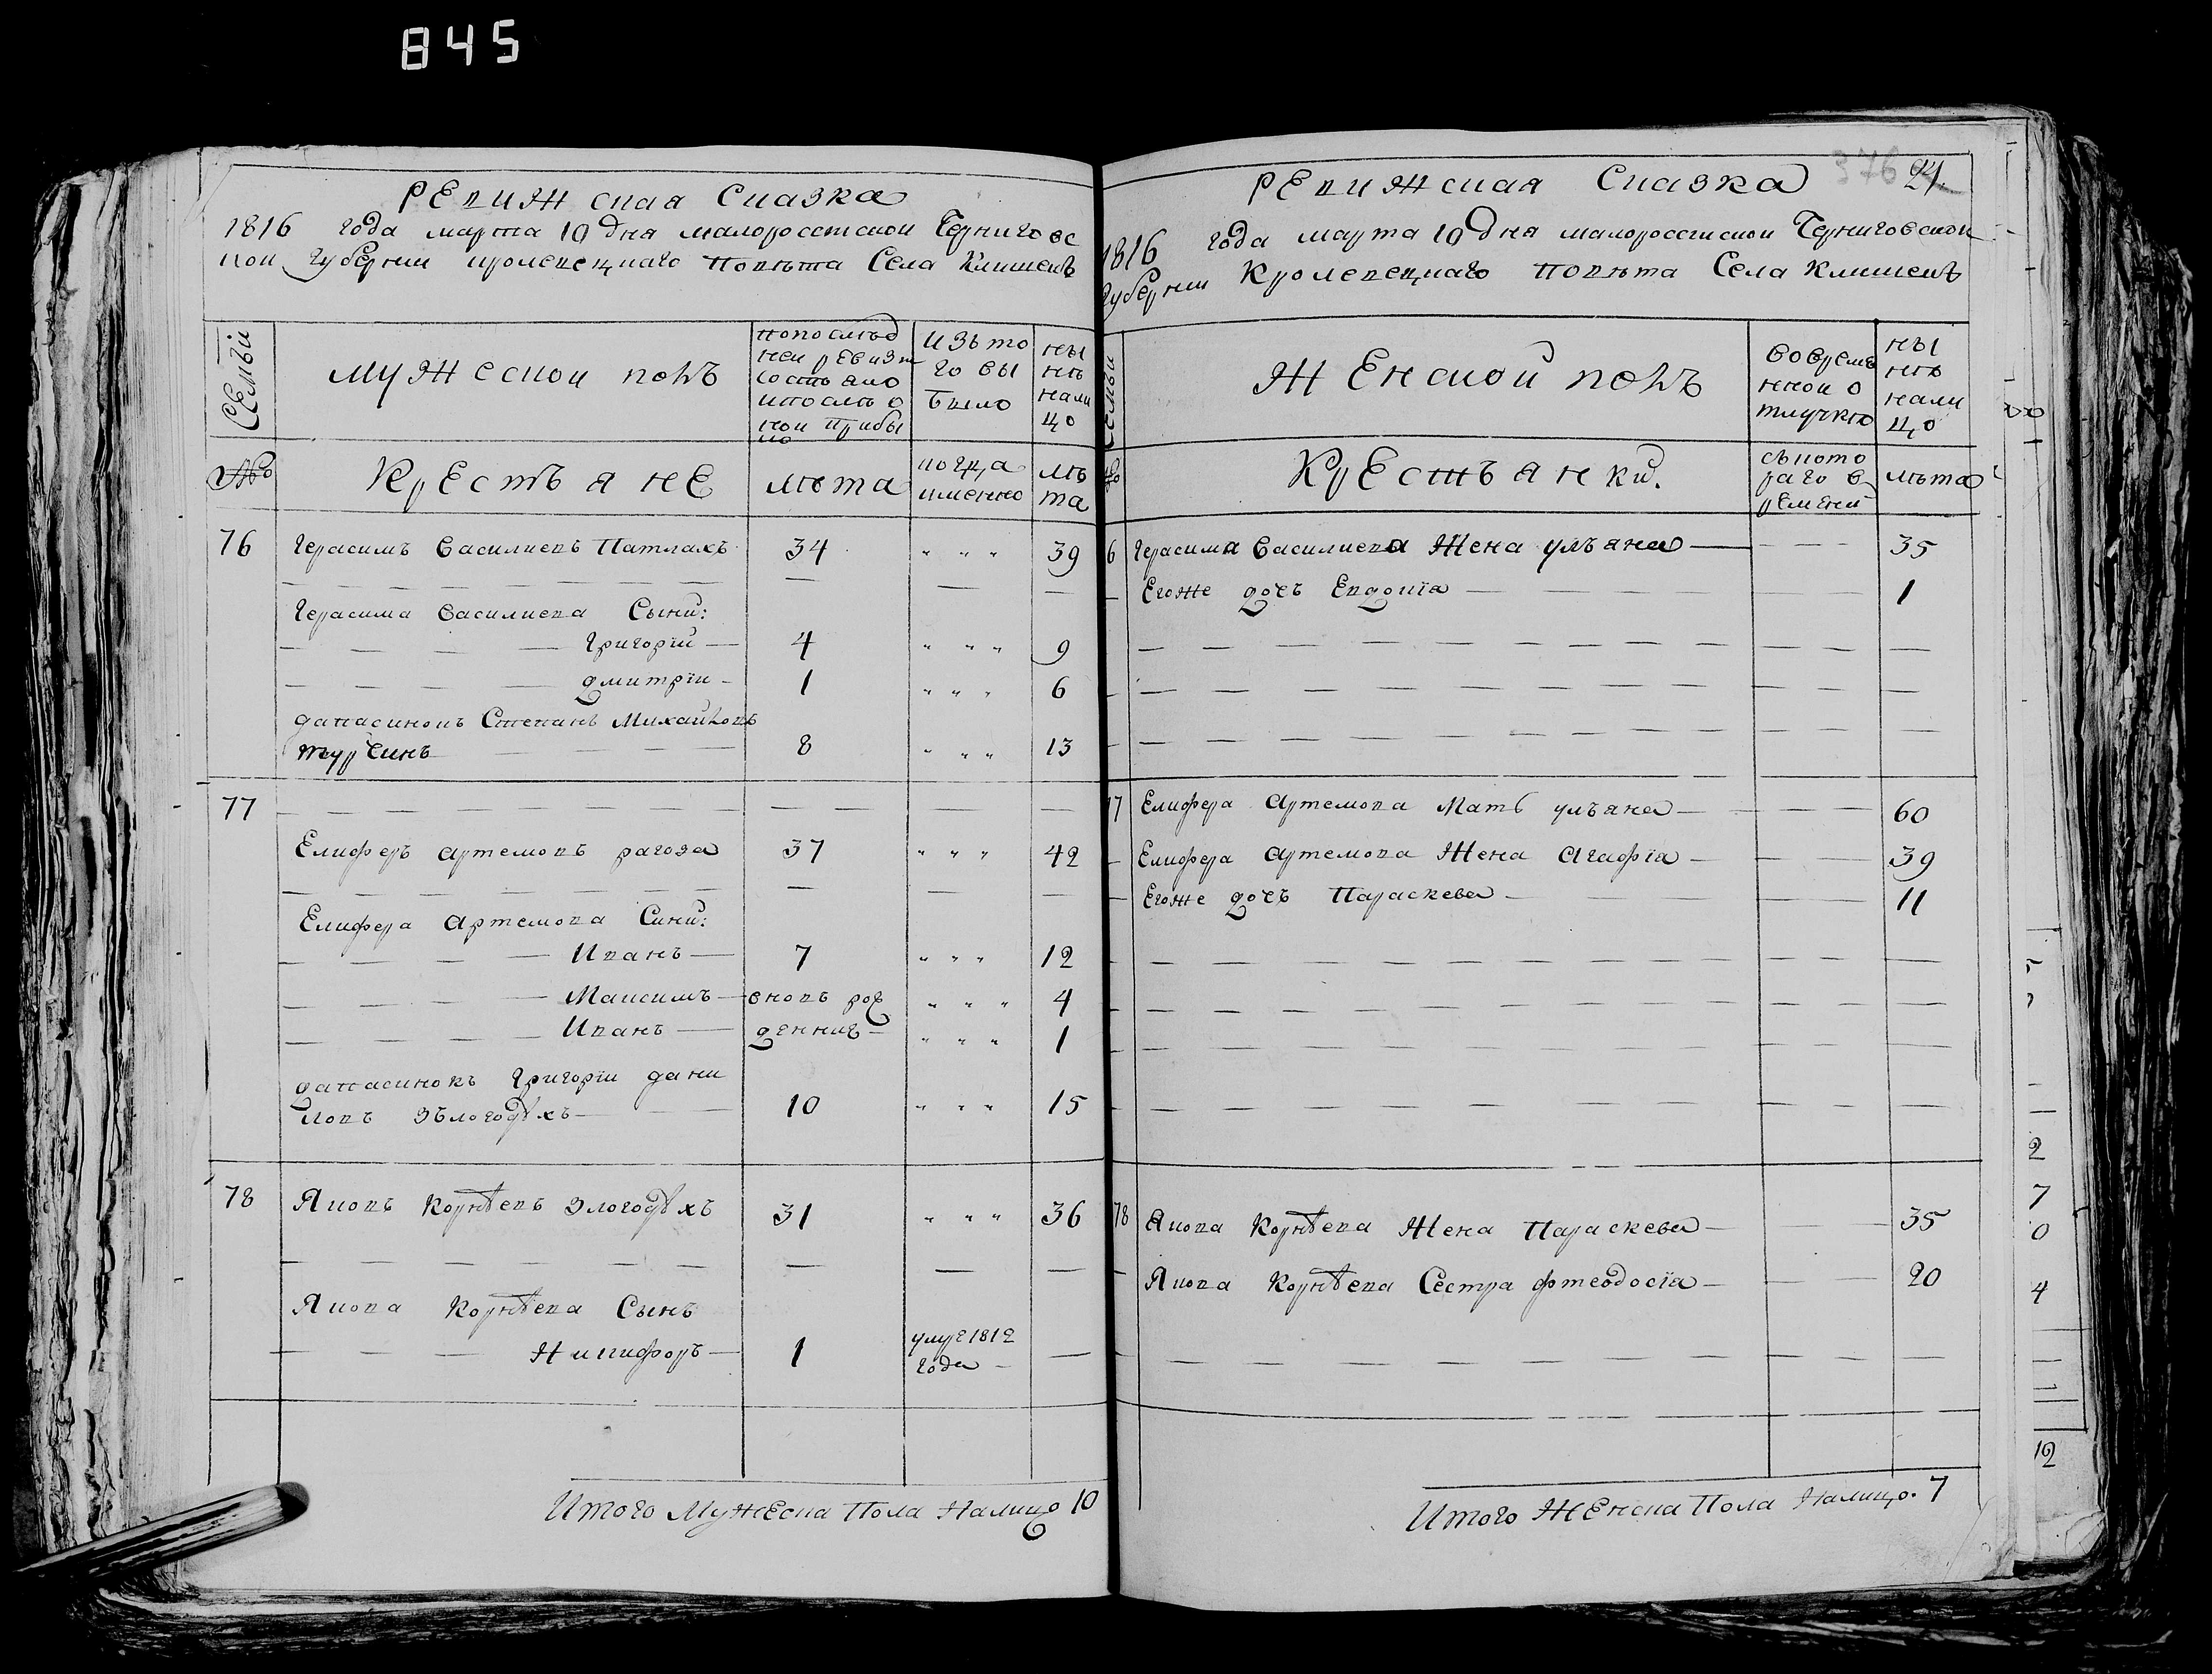 845
Ревижская Сказка
1816 года марта 10 дня малоросстской Черниговс
кой Губернии кролевецкаго Повѣта Села Клишекъ
Семьи
мужеской полъ
попослѣд
ней ревизи
состояло
ипослѣ о
ной прибы
ло
Изъто
го вы
было
ны
нѣ
нали
цо
№
Крестьяне
лѣта
когда
имянно
лѣ
та
76 Герасимъ Василиевъ Патлахъ 34 " " " 39
Герасима Василиева Сыни:
Григорїй 4 " " " 9
дмитрїи 1 " " " 6
дапасинокъ Степанъ Михайловъ
турчинъ 8 " " " 13
77
Елисферъ артемовъ рагоза 37 " " " 42
Елисфера артемова Сини:
Иванъ 7 " " " 12
Максимъ вновъ рож " " " 4
Иванъ денние " " " 1
дапасинокъ Григорїи дани
ловъ Зълогодухъ 10 " " " 15
78 Яковъ Корнѣевъ Злогодухъ 31 " " " 36
Якова Корнѣева Сынъ
Никифоръ 1 умре 1812
года
Итого Мужеска Пола Налицо 10
376 24.
Ревижская Сказка
1816 года марта 10 дня малороссиской Черниговской
Губернии Кролевецкаго Повѣта Села Клишекъ
Семьи
Женской полъ
Вовреме
нной о
тлучкѣ
ны
нѣ
нали
цо
№
Крестьянки.
съкото
раго в
ремени
лѣта
6 Герасима Василиева Жена ульяна 35
Егоже дочъ Евдокїа 1
77 Елисфера Артемова Мать ульяна 60
Елисфера артемова Жена Агафїа 39
Егоже дочъ Параскева 11
78 Якова Корнѣева Жена Параскева 35
Якова Корнѣева Сестра фтеодосїа 20
Итого Женска Пола Налицо. 7
2
7
0
4
12